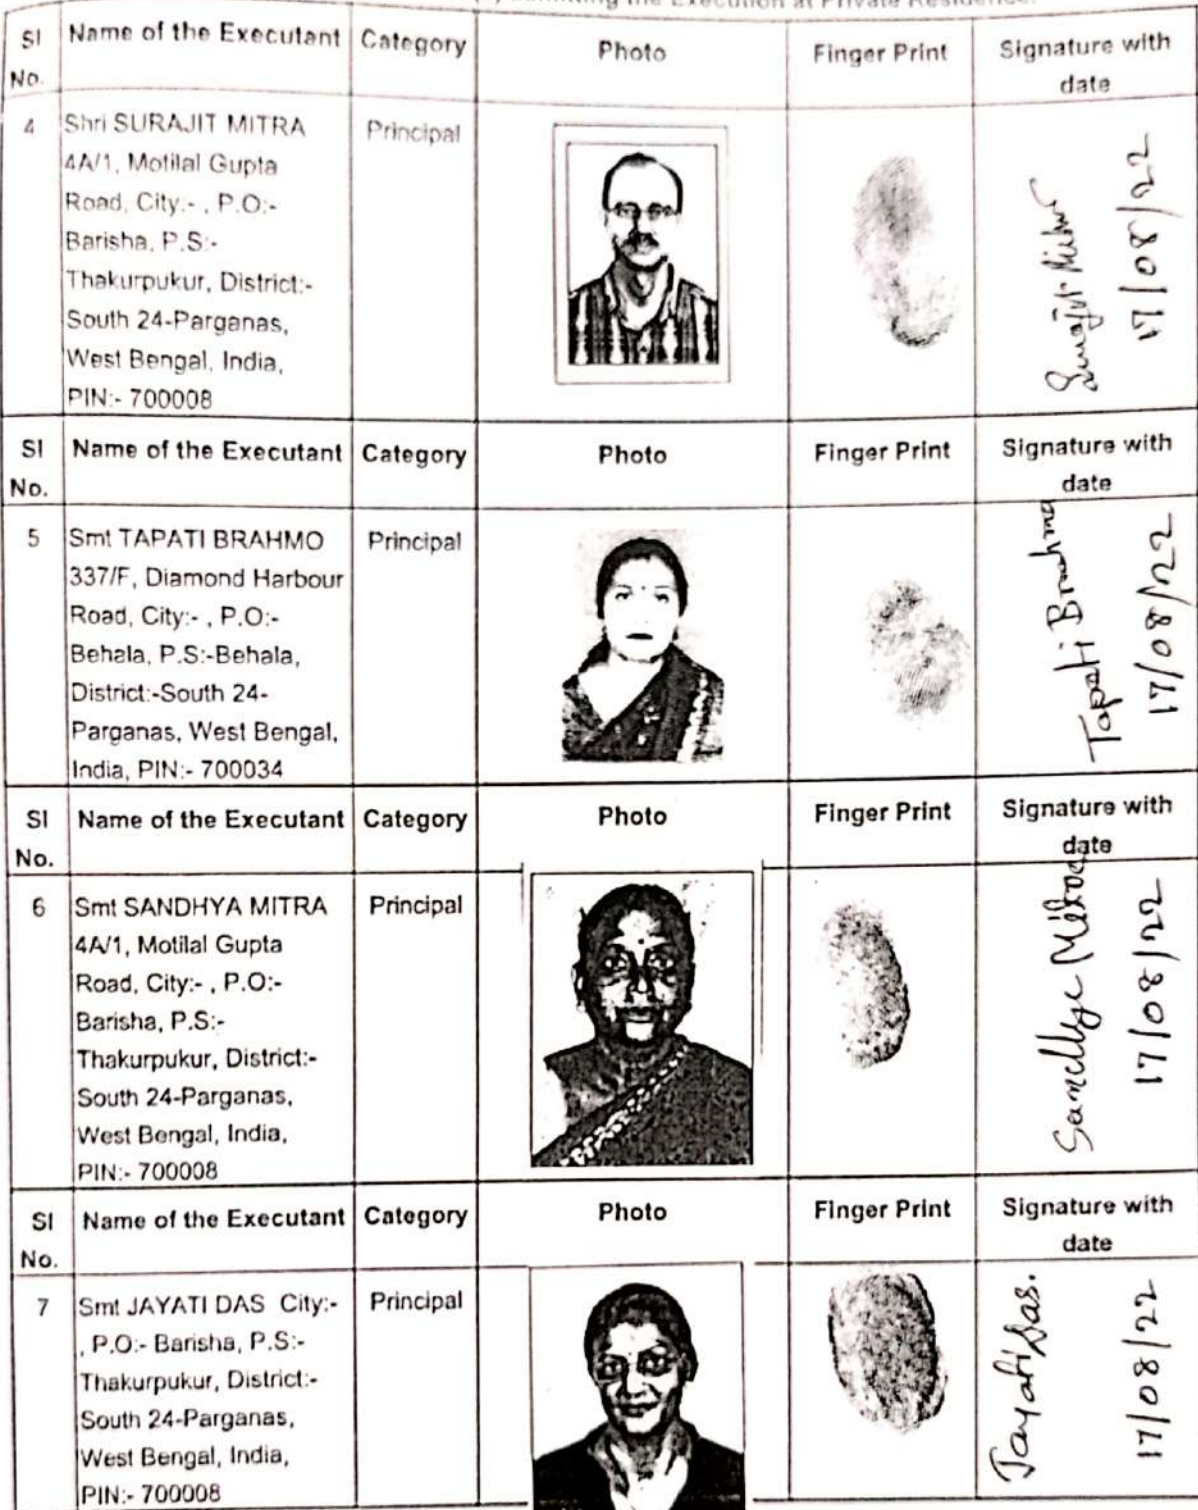 the Execution at Private Residence.
Sl No. Name of the Executant Category Photo Finger Print Signature with date
4 Shri SURAJIT MITRA Principal
4A/1, Motilal Gupta
Road, City:- , P.O:-
Barisha, P.S:-
Thakurpukur, District:-
South 24-Parganas,
West Bengal, India,
PIN:- 700008
Surajit Mitra
17/08/22
Sl No. Name of the Executant Category Photo Finger Print Signature with date
5 Smt TAPATI BRAHMO Principal
337/F, Diamond Harbour
Road, City:- , P.O:-
Behala, P.S:-Behala,
District:-South 24-
Parganas, West Bengal,
India, PIN:- 700034
Tapati Brahmo
17/08/22
Sl No. Name of the Executant Category Photo Finger Print Signature with date
6 Smt SANDHYA MITRA Principal
4A/1, Motilal Gupta
Road, City:- , P.O:-
Barisha, P.S:-
Thakurpukur, District:-
South 24-Parganas,
West Bengal, India,
PIN:- 700008
Sandhya Mitra
17/08/22
Sl No. Name of the Executant Category Photo Finger Print Signature with date
7 Smt JAYATI DAS City:- Principal
, P.O:- Barisha, P.S:-
Thakurpukur, District:-
South 24-Parganas,
West Bengal, India,
PIN:- 700008
Jayati Das.
17/08/22